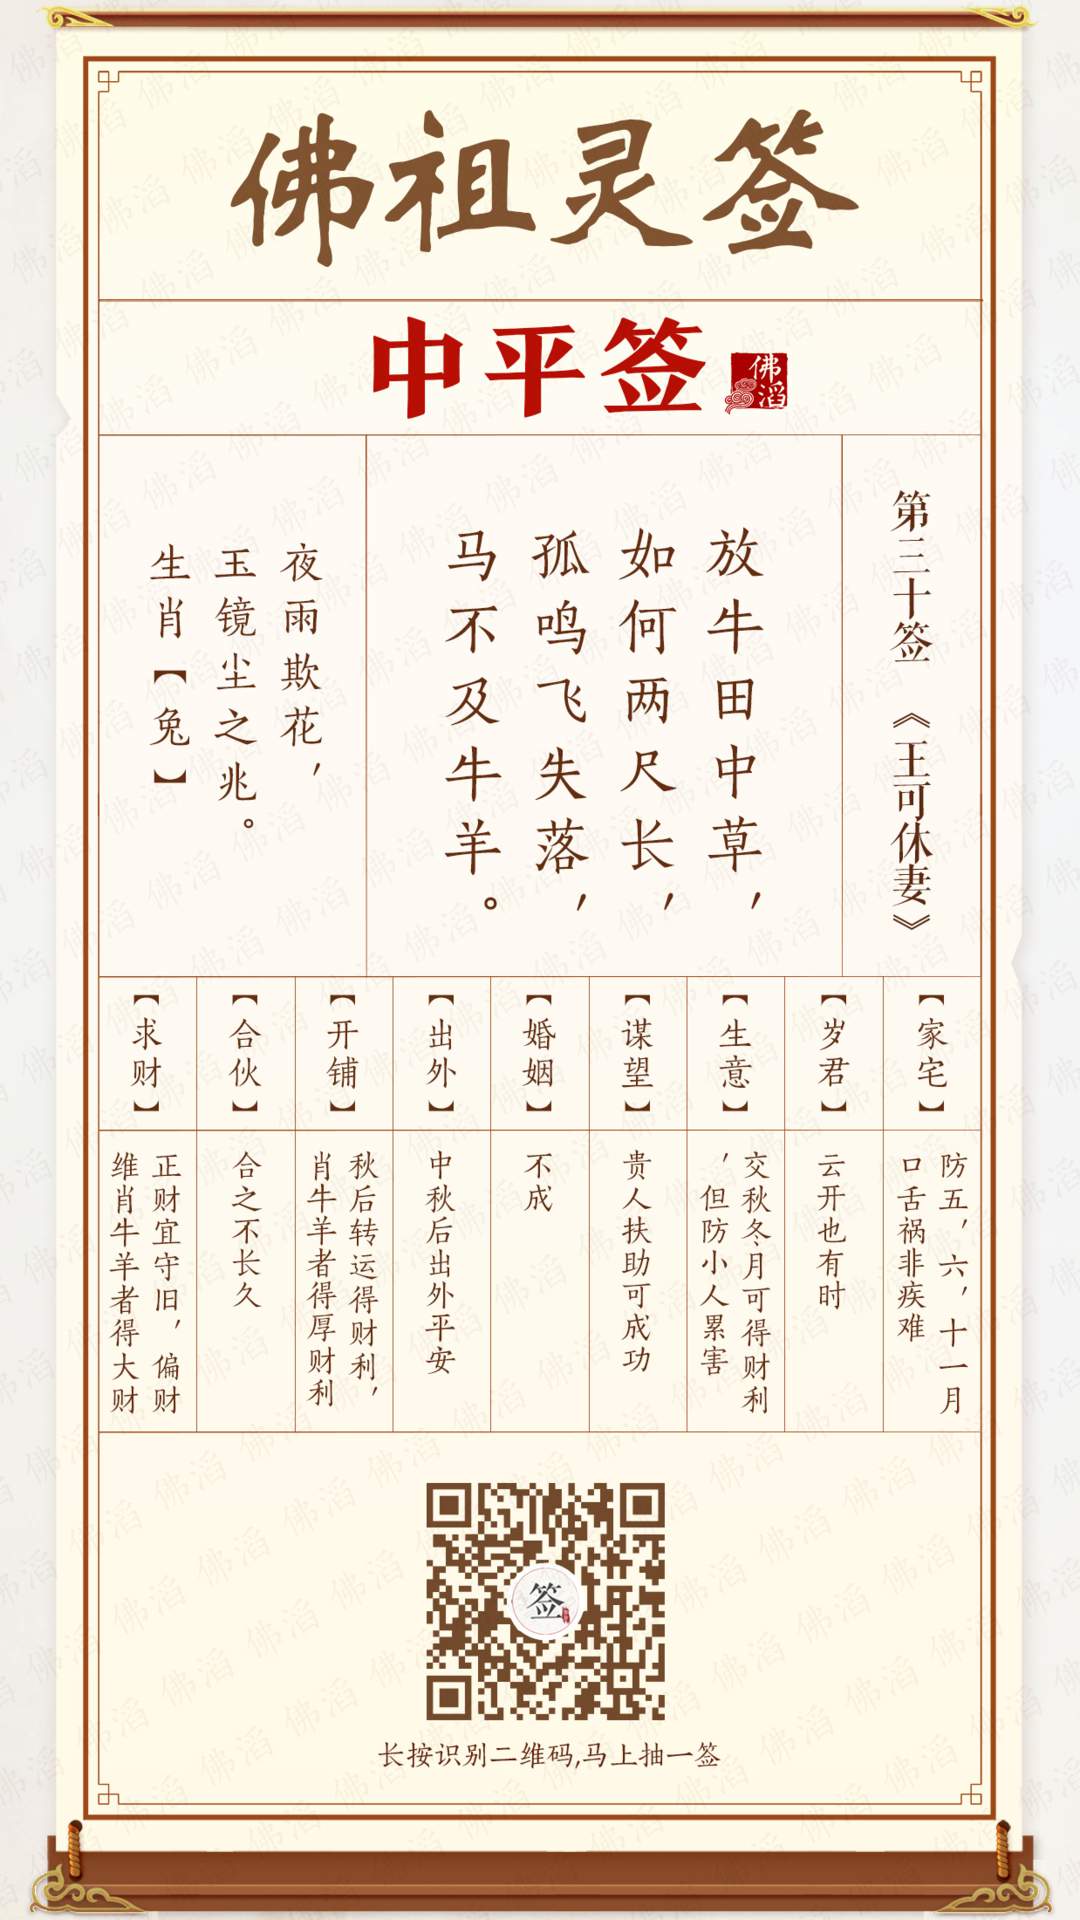 佛祖灵签
中平签
佛滔
第三十签 《王可休妻》
放牛田中草，
如何两尺长，
孤鸣飞失落，
马不及牛羊。
夜雨欺花，
玉镜尘之兆。
生肖【兔】
【家宅】
防五，六，十一月
口舌祸非疾难
【岁君】
云开也有时
【生意】
交秋冬月可得财利
，但防小人累害
【谋望】
贵人扶助可成功
【婚姻】
不成
【出外】
中秋后出外平安
【开铺】
秋后转运得财利，
肖牛羊者得厚财利
【合伙】
合之不长久
【求财】
正财宜守旧，偏财
维肖牛羊者得大财
签
长按识别二维码,马上抽一签